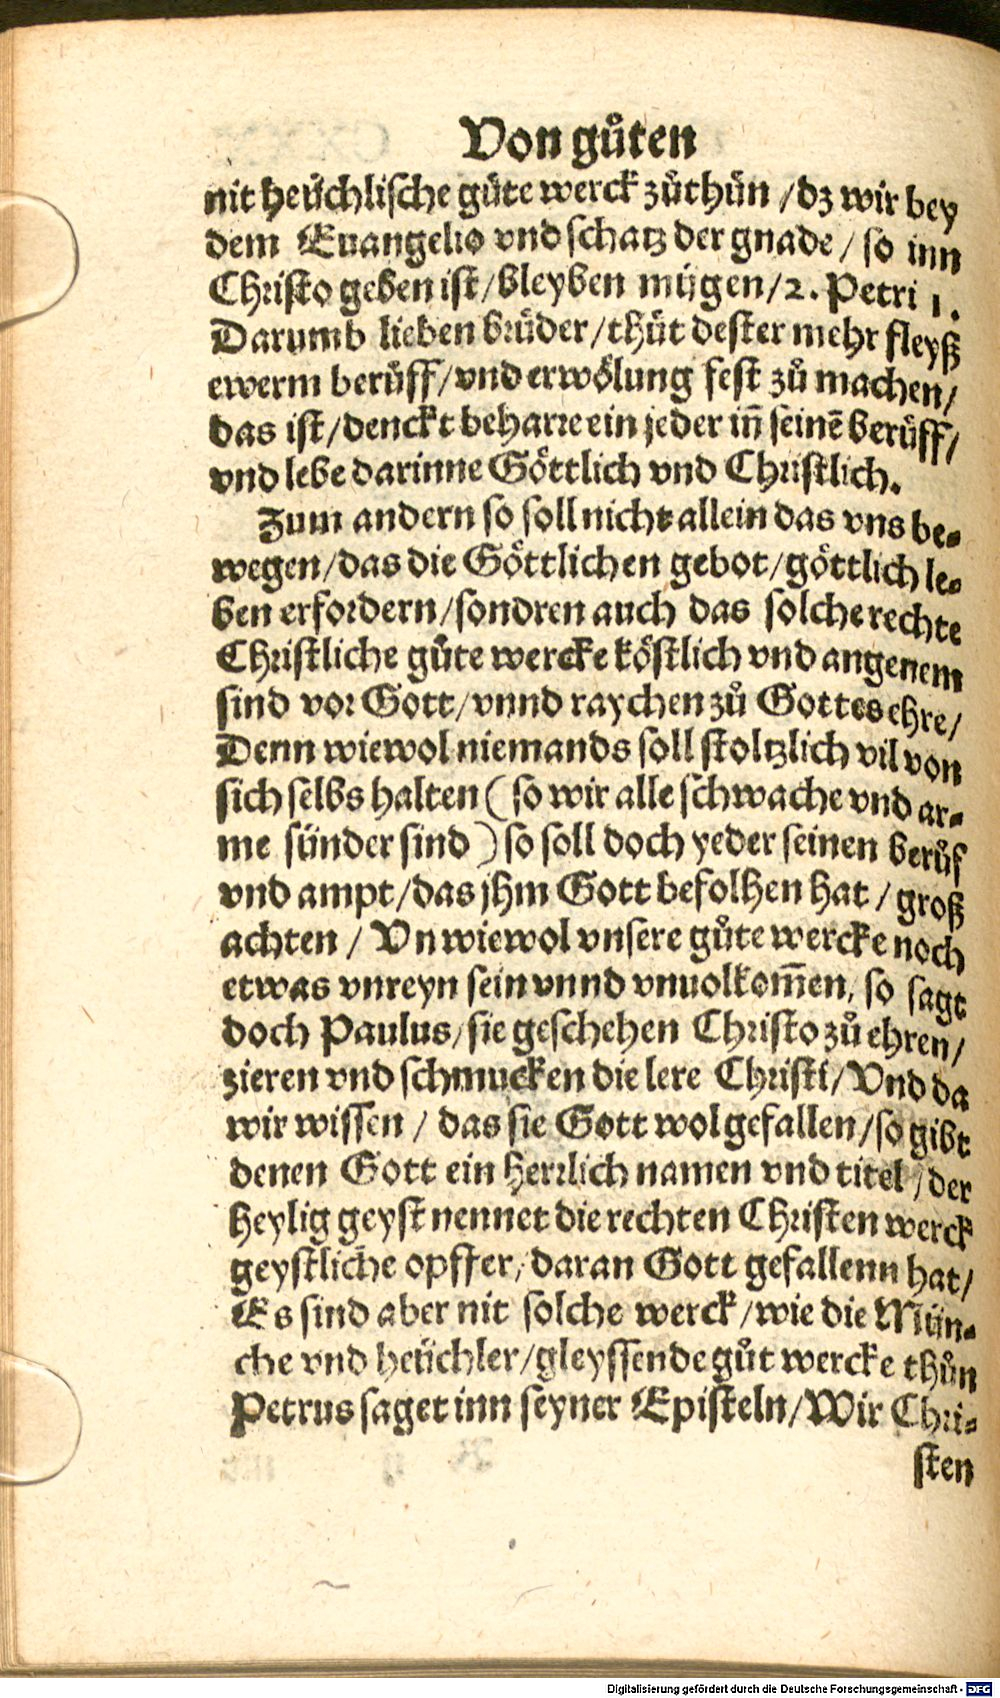 Von gůten
nit heüchlische gůte werck zůthůn / dz wir bey
dem Euangelio vnd schatz der gnade / so inn
Christo geben ist / bleyben mügen / 2. Petri 1.
Darumb lieben brüder / thůt dester mehr fleyß
ewerm berůff / vnd erwölung fest zů machen /
das ist / denckt beharre ein jeder in̄ seinē berůff /
vnd lebe darinne Göttlich vnd Christlich.
Zum andern so soll nicht allein das vns be-
wegen / das die Göttlichen gebot / göttlich le-
ben erfordern / sondren auch das solche rechte
Christliche gůte wercke köstlich vnd angenem
sind vor Gott / vnnd raychen zů Gottes ehre /
Denn wiewol niemands soll stoltzlich vil von
sich selbs halten ( so wir alle schwache vnd ar-
me sünder sind ) so soll doch yeder seinen berůf
vnd ampt / das jhm Gott befolhen hat / groß
achten / Vn wiewol vnsere gůte wercke noch
etwas vnreyn sein vnnd vnuolkom̄en, so sagt
doch Paulus / sie geschehen Christo zů ehren /
zieren vnd schmucken die lere Christi / Vnd da
wir wissen / das sie Gott wolgefallen / so gibt
denen Gott ein herrlich namen vnd titel / der
heylig geyst nennet die rechten Christen werck
geystliche opffer, daran Gott gefallenn hat /
Es sind aber nit solche werck / wie die Mün-
che vnd heüchler / gleyssende gůt wercke thůn
Petrus saget inn seyner Episteln / Wir Chri-
sten
Digitalisierung gefördert durch die Deutsche Forschungsgemeinschaft - DFG